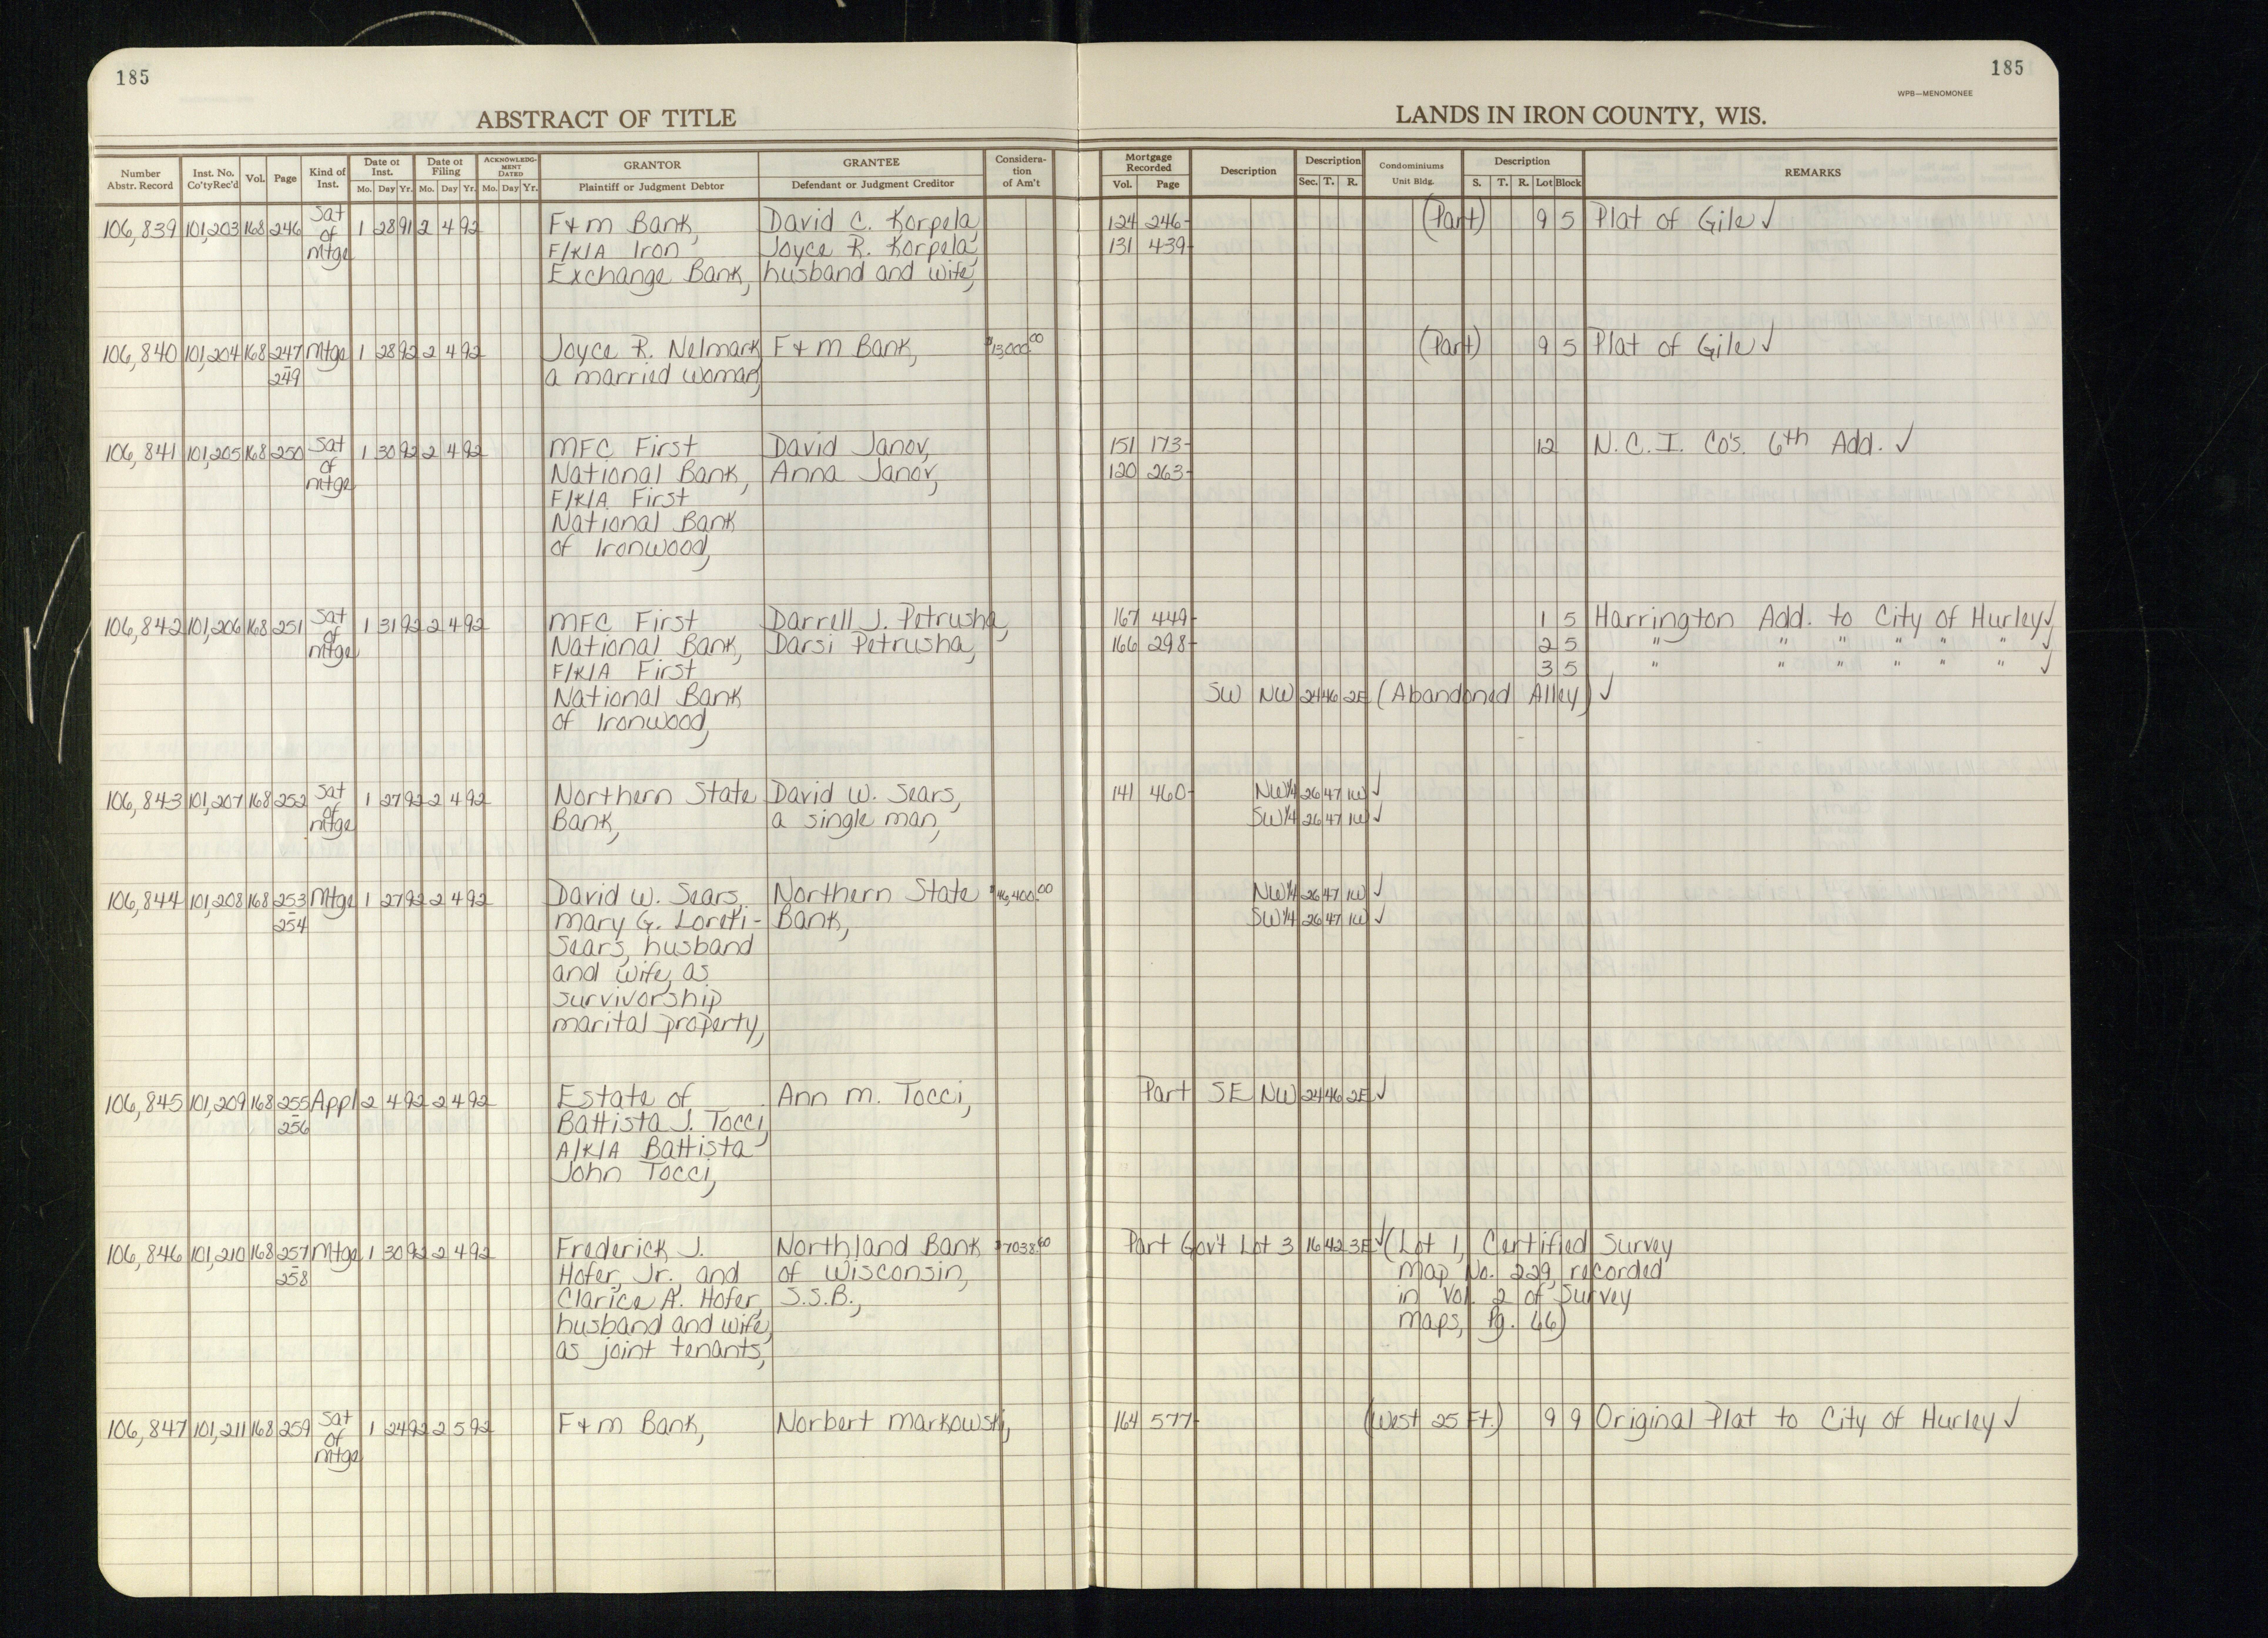 185
185
WPB—MENOMONEE
ABSTRACT OF TITLE
LANDS IN IRON COUNTY, WIS.
Number Abstr. Record | Inst. No. Co'ty Rec'd | Vol. | Page | Kind of Inst. | Date of Inst. Mo. Day Yr. | Date of Filing Mo. Day Yr. | ACKNOWLEDGMENT DATED Mo. Day Yr. | GRANTOR Plaintiff or Judgment Debtor | GRANTEE Defendant or Judgment Creditor | Consideration of Am't | Mortgage Recorded Vol. Page | Description | Description Sec. T. R. | Condominiums Unit Bldg. | Description S. T. R. Lot Block | REMARKS
106,839 101,203 168 246 Sat of Mtge 1 28 91 2 4 92 F&M Bank, David C. Korpela, 124 246- (Part) 9 5 Plat of Gile ✓
F/K/A Iron Joyce R. Korpela, 131 439-
Exchange Bank, husband and wife,
106,840 101,204 168 247 Mtge 1 28 92 2 4 92 Joyce R. Nelmark F&M Bank, $13,000.00 (Part) 9 5 Plat of Gile ✓
- 249 a married woman,
106,841 101,205 168 250 Sat of mtge 1 30 92 2 4 92 MFC First David Janov, 151 173- 12 N.C.I. Co's. 6th Add. ✓
National Bank, Anna Janov, 120 263-
F/K/A First
National Bank
of Ironwood,
106,842 101,206 168 251 Sat of mtge 1 31 92 2 4 92 MFC First Darrell J. Petrusha, 167 449- 1 5 Harrington Add. to City of Hurley ✓
National Bank, Darsi Petrusha, 166 298- 2 5 " " " " " " ✓
F/K/A First 3 5 " " " " " " ✓
National Bank SW NW 24 46 2E (Abandoned Alley) ✓
of Ironwood,
106,843 101,207 168 252 Sat of mtge 1 27 92 2 4 92 Northern State David W. Sears, 141 460- NW¼ 26 47 1W ✓
Bank, a single man, SW¼ 26 47 1W ✓
106,844 101,208 168 253 Mtge 1 27 92 2 4 92 David W. Sears, Northern State $46,400.00 NW¼ 26 47 1W ✓
- 254 Mary G. Loreti- Bank, SW¼ 26 47 1W ✓
Sears, husband
and wife, as
survivorship
marital property,
106,845 101,209 168 255 Appl 2 4 92 2 4 92 Estate of Ann M. Tocci, Part SE NW 24 46 2E ✓
- 256 Battista J. Tocci,
A/K/A Battista
John Tocci,
106,846 101,210 168 257 Mtge 1 30 92 2 4 92 Frederick J. Northland Bank $7038.60 Part Gov't Lot 3 16 42 3E ✓ (Lot 1, Certified Survey
- 258 Hofer, Jr., and of Wisconsin, Map No. 229, recorded
Clarice A. Hofer, S.S.B., in Vol. 2 of Survey
husband and wife, Maps, Pg. 66)
as joint tenants,
106,847 101,211 168 259 Sat of mtge 1 24 92 2 5 92 F&M Bank, Norbert Markowski, 164 577- (West 25 Ft.) 9 9 Original Plat to City of Hurley ✓